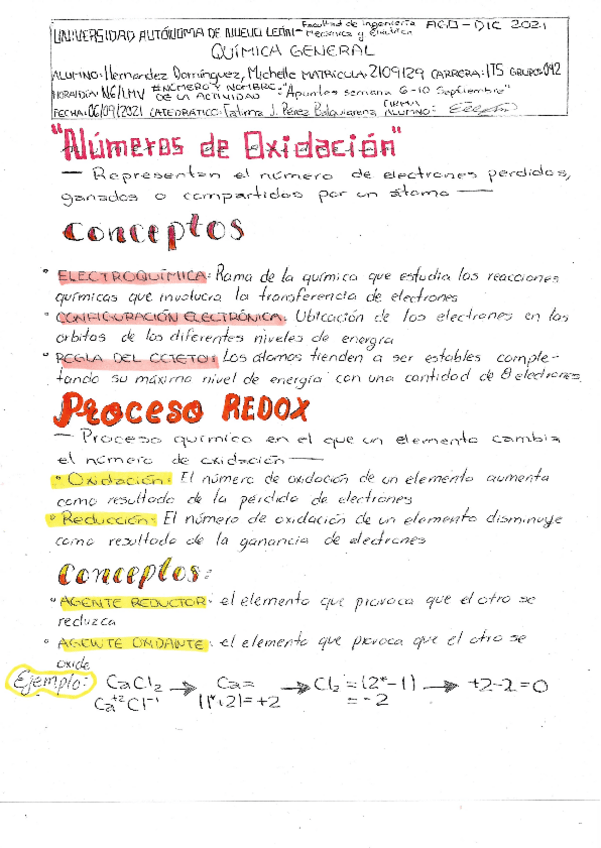 UNIVERSIDAD AUTÓNOMA DE NUEVO LEÓN - Facultad de ingeniería Mecánica y Eléctrica AGO-DIC 2021
QUÍMICA GENERAL
ALUMNO: Hernandez Domínguez, Michelle MATRÍCULA: 2109129 CARRERA: ITS GRUPO: 042
HORA/DÍA: N6/LMV #NÚMERO Y NOMBRE DE LA ACTIVIDAD: "Apuntes semana 6-10 Septiembre"
FECHA: 06/09/2021 CATEDRÁTICO: Fatima J. Pérez FIRMA ALUMNO:
"Números de Oxidación"
— Representan el número de electrones perdidos,
ganados o compartidos por un átomo —
Conceptos
• ELECTROQUÍMICA: Rama de la química que estudia las reacciones
químicas que involucra la transferencia de electrones
• CONFIGURACIÓN ELECTRÓNICA: Ubicación de los electrones en los
orbitas de los diferentes niveles de energía
• REGLA DEL OCTETO: Los átomos tienden a ser estables comple-
tando su máximo nivel de energía con una cantidad de 8 electrones.
Proceso REDOX
— Proceso químico en el que un elemento cambia
el número de oxidación —
• Oxidación: El número de oxidación de un elemento aumenta
como resultado de la pérdida de electrones
• Reducción: El número de oxidación de un elemento disminuye
como resultado de la ganancia de electrones
Conceptos:
• AGENTE REDUCTOR: el elemento que provoca que el otro se
reduzca
• AGENTE OXIDANTE: el elemento que provoca que el otro se
oxide
Ejemplo: CaCl2 → Ca= → Cl2=(2*-1) → +2-2=0
Ca+2Cl-1 (1*+2)=+2 =-2